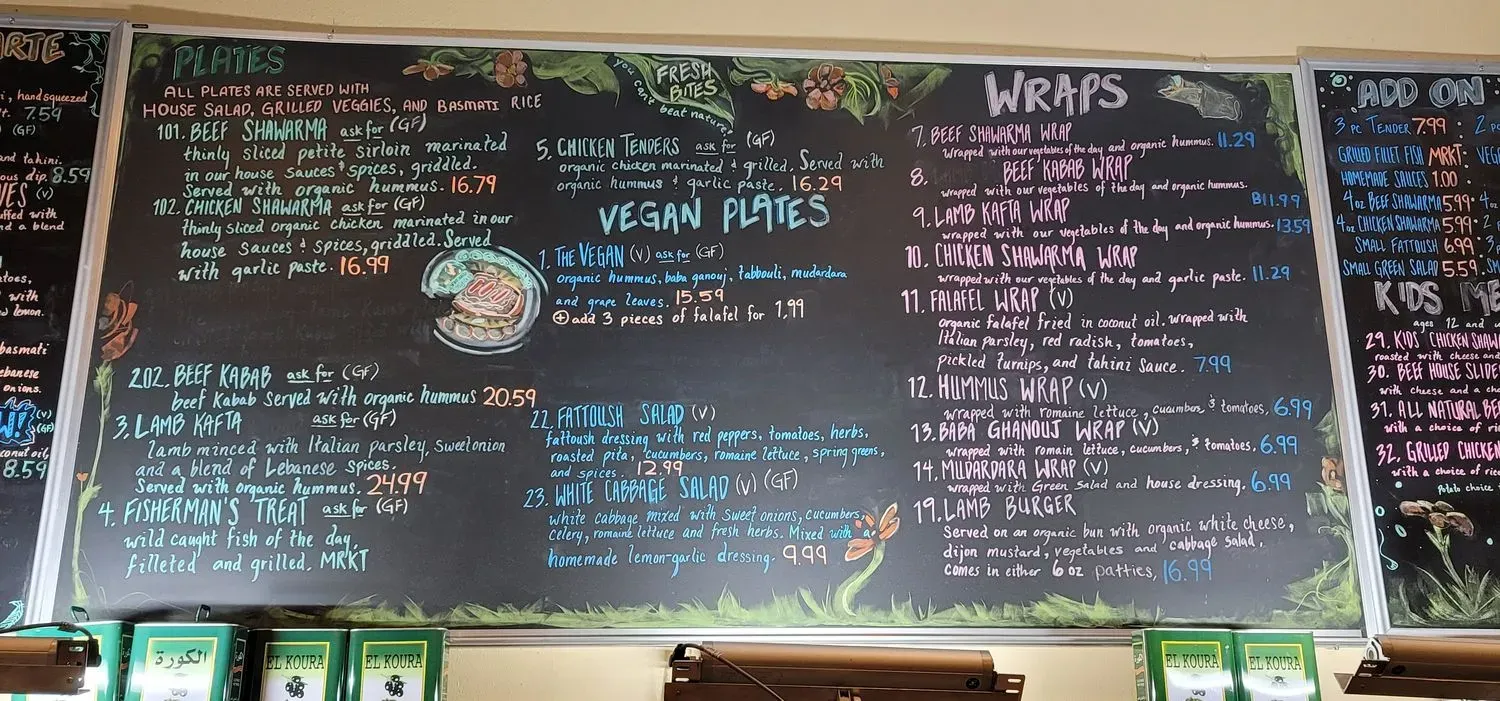 ARTE
, hand squeezed
7.59
(GF)
and tahini.
ous dip. 8.59
VES (V)
uffed with
nd a blend
toes,
with
lemon.
basmati
ebanese
onions.
(V)
(GF)
conut oil,
8.59
PLATES
ALL PLATES ARE SERVED WITH
HOUSE SALAD, GRILLED VEGGIES, AND BASMATI RICE
101. BEEF SHAWARMA ask for (GF)
thinly sliced petite sirloin marinated
in our house sauces & spices, griddled.
Served with organic hummus. 16.79
102. CHICKEN SHAWARMA ask for (GF)
thinly sliced organic chicken marinated in our
house sauces & spices, griddled. Served
with garlic paste. 16.99
202. BEEF KABAB ask for (GF)
beef Kabab Served with organic hummus 20.59
3. LAMB KAFTA ask for (GF)
lamb minced with Italian parsley, sweet onion
and a blend of Lebanese spices.
Served with organic hummus. 24.99
4. FISHERMAN'S TREAT ask for (GF)
wild caught fish of the day,
filleted and grilled. MRKT
you can't
FRESH
BITES
beat nature!
5. CHICKEN TENDERS ask for (GF)
organic chicken marinated & grilled. Served with
organic hummus & garlic paste. 16.29
VEGAN PLATES
1. THE VEGAN (V) ask for (GF)
organic hummus, baba ganouj, tabbouli, mudardara
and grape leaves. 15.59
+ add 3 pieces of falafel for 1,99
22. FATTOUSH SALAD (V)
fattoush dressing with red peppers, tomatoes, herbs,
roasted pita, cucumbers, romaine lettuce, spring greens,
and spices. 12.99
23. WHITE CABBAGE SALAD (V) (GF)
white cabbage mixed with sweet onions, cucumbers,
celery, romaine lettuce and fresh herbs. Mixed with a
homemade lemon-garlic dressing. 9.99
WRAPS
7. BEEF SHAWARMA WRAP
Wrapped with our vegetables of the day and organic hummus. 11.29
8. BEEF KABAB WRAP
wrapped with our vegetables of the day and organic hummus.
B11.99
9. LAMB KAFTA WRAP
wrapped with our vegetables of the day and organic hummus. 13.59
10. CHICKEN SHAWARMA WRAP
wrapped with our vegetables of the day and garlic paste. 11.29
11. FALAFEL WRAP (V)
organic falafel fried in coconut oil. wrapped with
Italian parsley, red radish, tomatoes,
pickled turnips, and tahini sauce. 7.99
12. HUMMUS WRAP (V)
wrapped with romaine lettuce, cucumbers & tomatoes. 6.99
13. BABA GHANOUJ WRAP (V)
wrapped with romain lettuce, cucumbers, & tomatoes. 6.99
14. MUDARDARA WRAP (V)
wrapped with Green Salad and house dressing. 6.99
19. LAMB BURGER
Served on an organic bun with organic white cheese,
dijon mustard, vegetables and cabbage salad.
comes in either 6 oz patties, 16.99
ADD ON
3 PC TENDER 7.99 : 2 P
GRILLED FILLET FISH MRKT: VEG
HOMEMADE SAUCES 1.00 :
4 oz BEEF SHAWARMA 5.99 : 4 o
4 oz CHICKEN SHAWARMA 5.99 : 2
SMALL FATTOUSH 6.99 : 3
SMALL GREEN SALAD 5.59 . SM
KIDS ME
ages 12 and u
29. KIDS CHICKEN SHAW
roasted with cheese and
30. BEEF HOUSE SLIDE
with cheese and a cho
31. ALL NATURAL BE
with a choice of ri
32. GRILLED CHICKEN
with a choice of ric
potato choice
الكورة
EL KOURA
EL KOURA
EL KOURA
EL KOURA